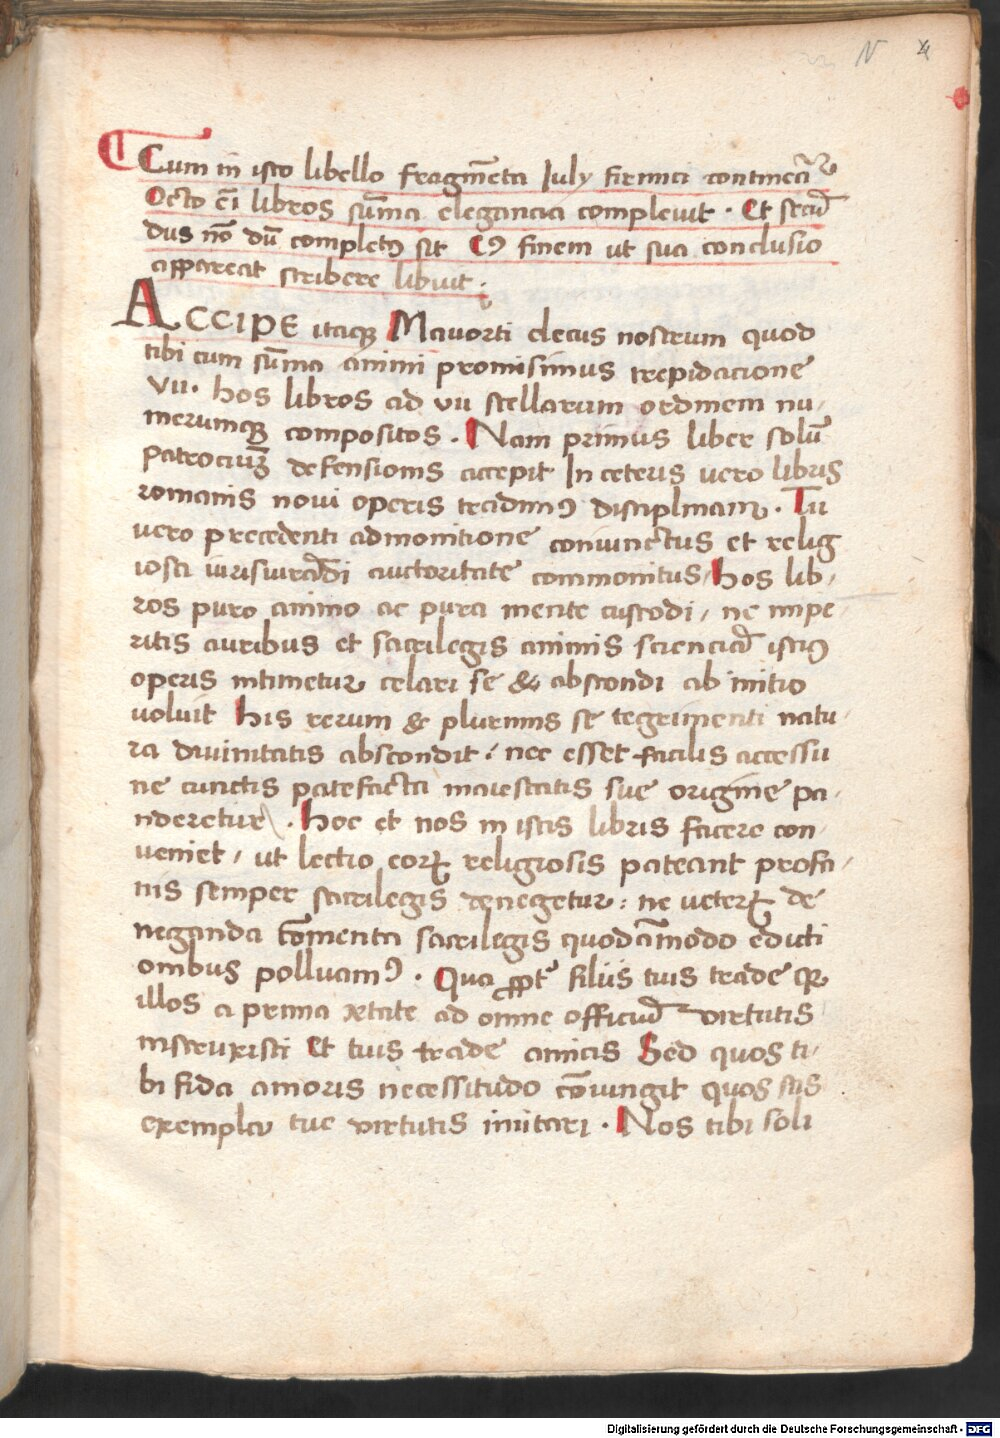 N 4
Cum in isto libello fragm̄eta Iuly firmici contineāt᷑
Octo em̄ libros sūma elegancia complevit · Et secūd
dus nō dū completꝰ sit Eiꝰ finem ut sua conclusio
appareat scribere libuit ·
ACCIPE itaqꝫ Mavorti decus nostrum quod
tibi cum sūma animi promisimus trepidacione
VII · hos libros ad vii stellarum ordinem nu,
merumqꝫ compositos · Nam primus liber solū
patrociniū defensionis accepit In ceteris vero libris
romanis novi operis tradimꝰ disciplinam · Tu
vero precedenti admonitione coniunctus et relig
iosa iurisiurādi auctoritate commonitus, hos lib,
ros puro animo ac pura mente custodi, ne impe,
ritis auribus et sacrilegis animis scienciā istiꝰ
operis intimetur celari se & abscondi ab initio
voluit his rerum & plurimis se tegrimenti natu,
ra divinitatis abscondit : nec esset facilis accessu
ne cunctis patefacta maiestatis sue origine pa,
nderetur · hoc et nos in istis libris facere con,
veniet, ut lectio eorꝝ religiosis pateant profa,
nis semper sacrilegis denegetur : ne veterꝝ de
neganda cōmenta sacrilegis quodāmodo editi
onibus polluamꝰ · Qua ꝓpt᷑ filiis tuis trade qꝫ
illos a prima ętate ad omne officiū virtutis
instruxisti Et tuis trade amicis Sed quos ti,
bi fida amoris necessitudo cōiungit quos scis
exempla tue virtutis imitari · Nos tibi soli
Digitalisierung gefördert durch die Deutsche Forschungsgemeinschaft - DFG